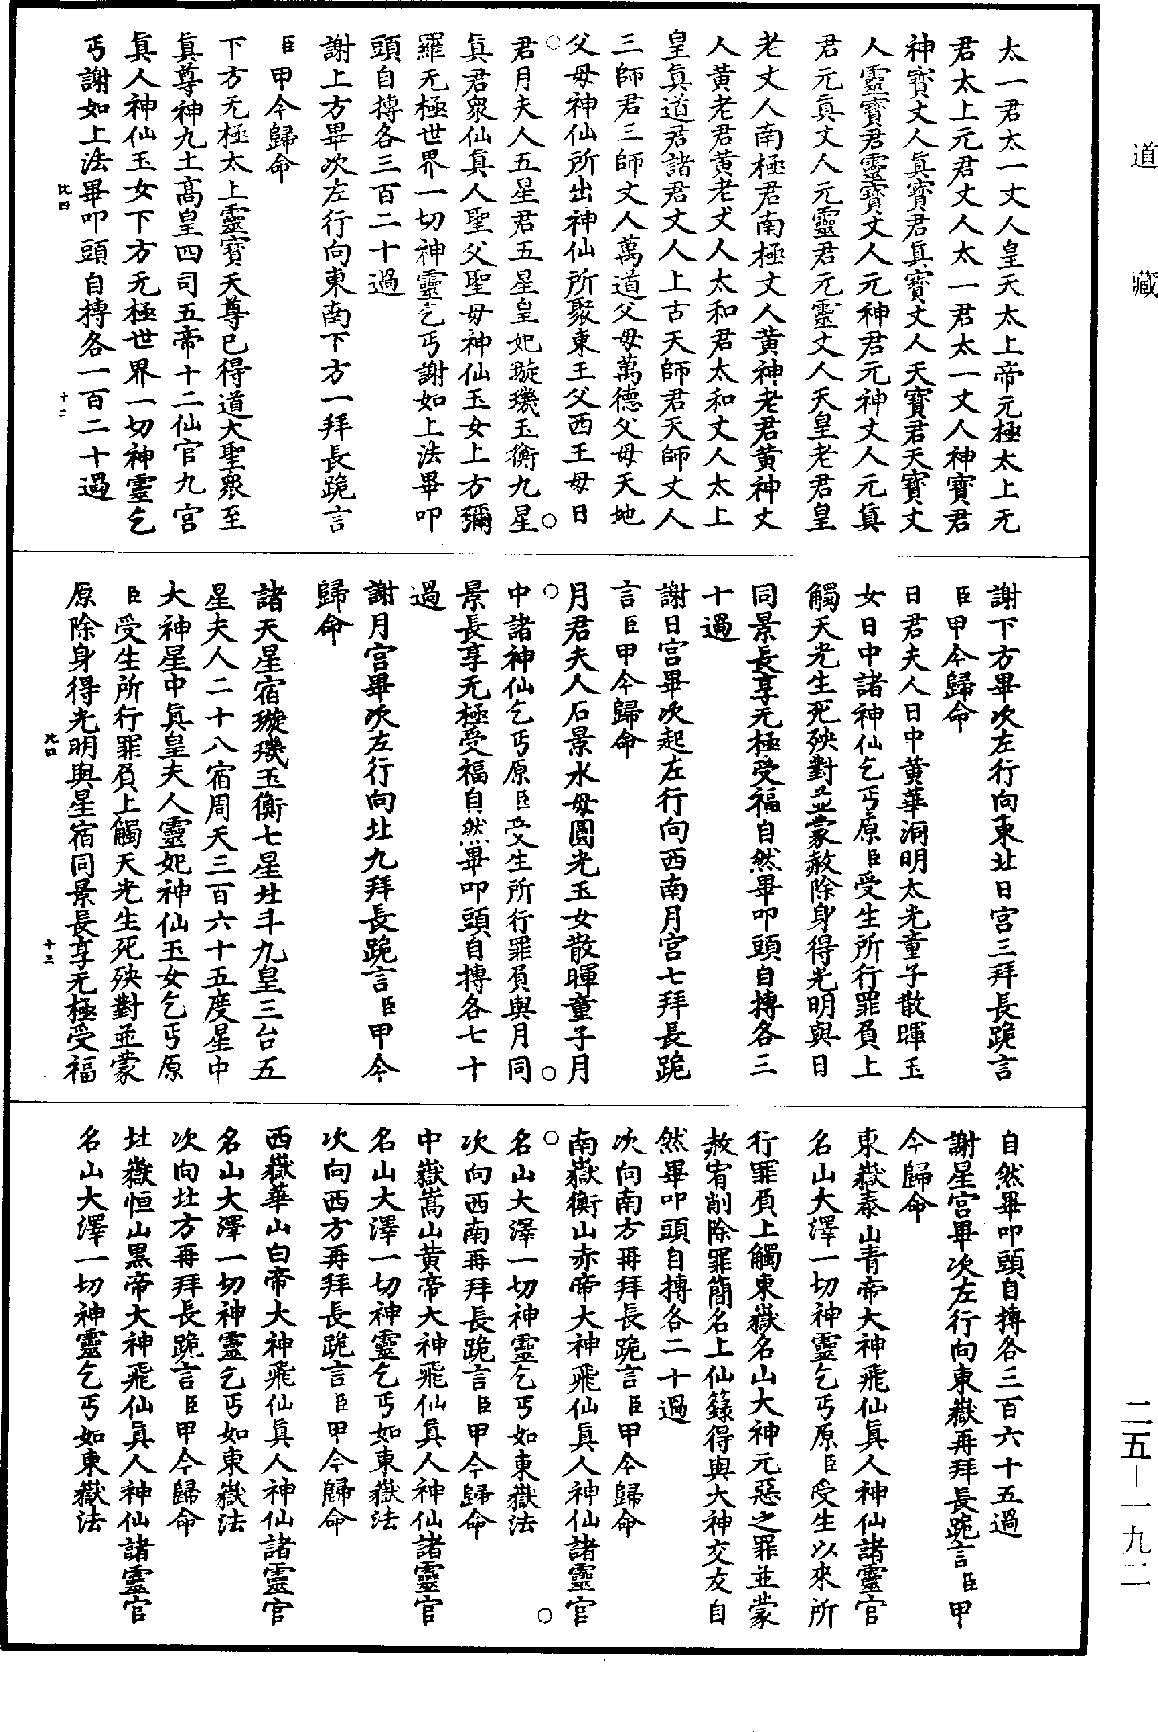 道藏
二五—一九二
太一君太一丈人皇天太上帝元極太上无
君太上元君丈人太一君太一丈人神寶君
神寶丈人真寶君真寶丈人天寶君天寶丈
人靈寶君靈寶丈人元神君元神丈人元真
君元真丈人元靈君元靈丈人天皇老君皇
老丈人南極君南極丈人黃神老君黃神丈
人黃老君黃老丈人太和君太和丈人太上
皇真道君諸君丈人上古天師君天師丈人
三師君三師丈人萬道父母萬德父母天地
父母神仙所出神仙所聚東王父西王母日
君月夫人五星君五星皇妃璇璣玉衡九星
真君衆仙真人聖父聖母神仙玉女上方彌
羅无極世界一切神靈乞丐謝如上法畢叩
頭自搏各三百二十過
謝上方畢次左行向東南下方一拜長跪言
臣甲今歸命
下方无極太上靈寶天尊已得道大聖衆至
真尊神九土高皇四司五帝十二仙官九宮
真人神仙玉女下方无極世界一切神靈乞
丐謝如上法畢叩頭自搏各一百二十過
十二
謝下方畢次左行向東北日宮三拜長跪言
臣甲今歸命
日君夫人日中黃華洞明太光童子散暉玉
女日中諸神仙乞丐原臣受生所行罪負上
觸天光生死殃對並蒙赦除身得光明與日
同景長享元極受福自然畢叩頭自搏各三
十過
謝日宮畢次起左行向西南月宮七拜長跪
言臣甲今歸命
月君夫人石景水母圓光玉女散暉童子月
中諸神仙乞丐原臣受生所行罪負與月同
景長享无極受福自然畢叩頭自搏各七十
過
謝月宮畢次左行向北九拜長跪言臣甲今
歸命
諸天星宿璇璣玉衡七星北斗九皇三台五
星夫人二十八宿周天三百六十五度星中
大神星中真皇夫人靈妃神仙玉女乞丐原
臣受生所行罪負上觸天光生死殃對並蒙
原除身得光明與星宿同景長享无極受福
十三
自然畢叩頭自搏各三百六十五過
謝星宮畢次左行向東嶽再拜長跪言臣甲
今歸命
東嶽泰山青帝大神飛仙真人神仙諸靈官
名山大澤一切神靈乞丐原臣受生以來所
行罪負上觸東嶽名山大神元惡之罪並蒙
赦宥削除罪簡名上仙籙得與大神交友自
然畢叩頭自搏各二十過
次向南方再拜長跪言臣甲今歸命
南嶽衡山赤帝大神飛仙真人神仙諸靈官
名山大澤一切神靈乞丐如東嶽法
次向西南再拜長跪言臣甲今歸命
中嶽嵩山黃帝大神飛仙真人神仙諸靈官
名山大澤一切神靈乞丐如東嶽法
次向西方再拜長跪言臣甲今歸命
西嶽華山白帝大神飛仙真人神仙諸靈官
名山大澤一切神靈乞丐如東嶽法
次向北方再拜長跪言臣甲今歸命
北嶽恒山黑帝大神飛仙真人神仙諸靈官
名山大澤一切神靈乞丐如東嶽法